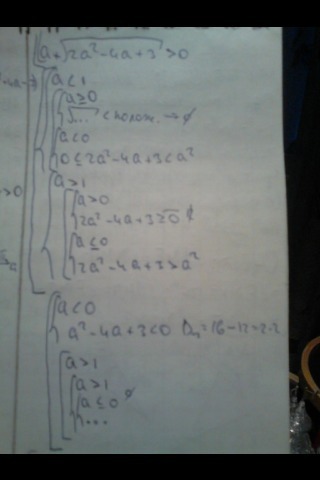 a+√2a²-4a+3 > 0
a<1
a≥0
√... < полож. → ∅
a<0
0≤2a²-4a+3<a²
a>1
a>0
2a²-4a+3≥0 ∅
a≤0
2a²-4a+3>a²
a<0
a²-4a+3<0 D₁=16-12=2·2
a>1
a>1
a≤0 ∅
...